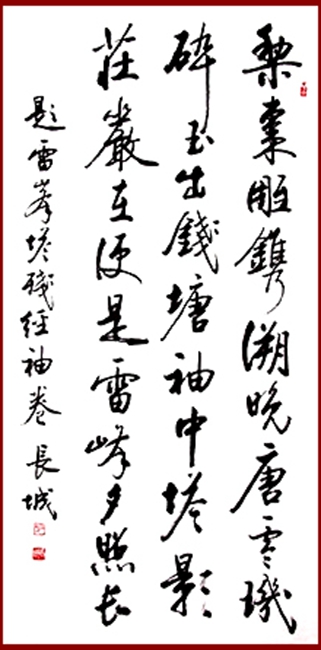 棃棗雕鐫溯晚唐零璣
碎玉出錢塘袖中塔影
莊嚴在便是雷峰夕照長
題雷峯塔殘經袖卷 長城